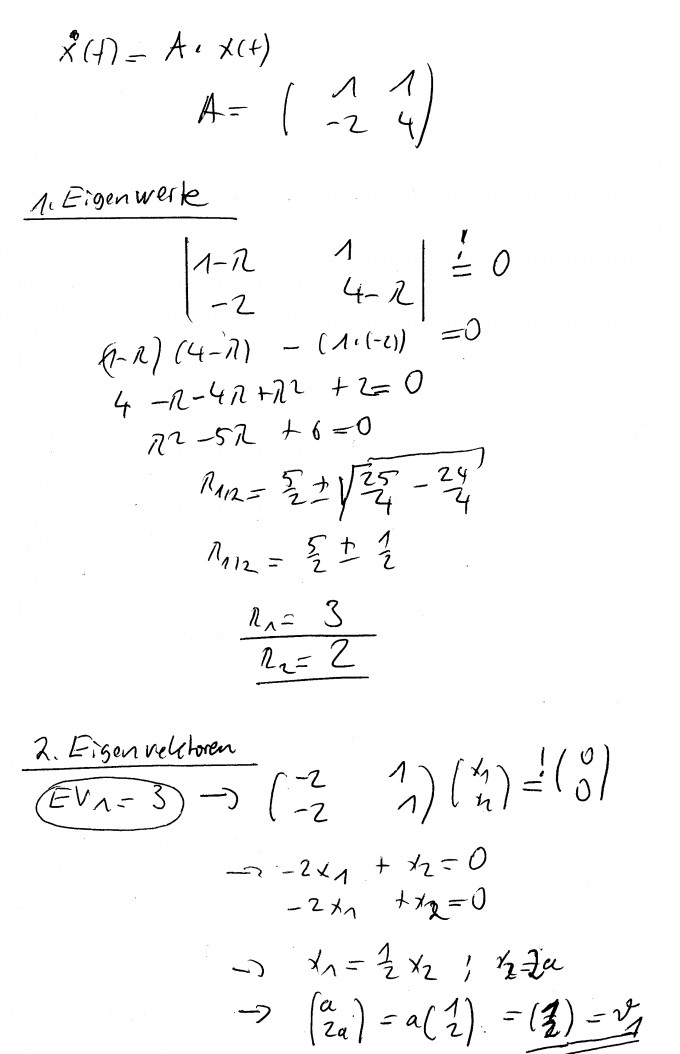 ẋ(t) = A · x(t)
A = ( 1 1
-2 4 )
1. Eigenwerte
| 1-λ 1
-2 4-λ | =! 0
(1-λ) (4-λ) - (1·(-2)) = 0
4 -λ -4λ +λ² + 2 = 0
λ² - 5λ + 6 = 0
λ1/2 = 5/2 ± √(25/4 - 24/4)
λ1/2 = 5/2 ± 1/2
λ1 = 3
λ2 = 2
2. Eigenvektoren
EV1 = 3 → ( -2 1
-2 1 ) ( x1
x2 ) =! ( 0
0 )
→ -2x1 + x2 = 0
-2x1 + x2 = 0
→ x1 = 1/2 x2 ; x2 = 2a
→ ( a
2a ) = a ( 1
2 ) = ( 1
2 ) = v1